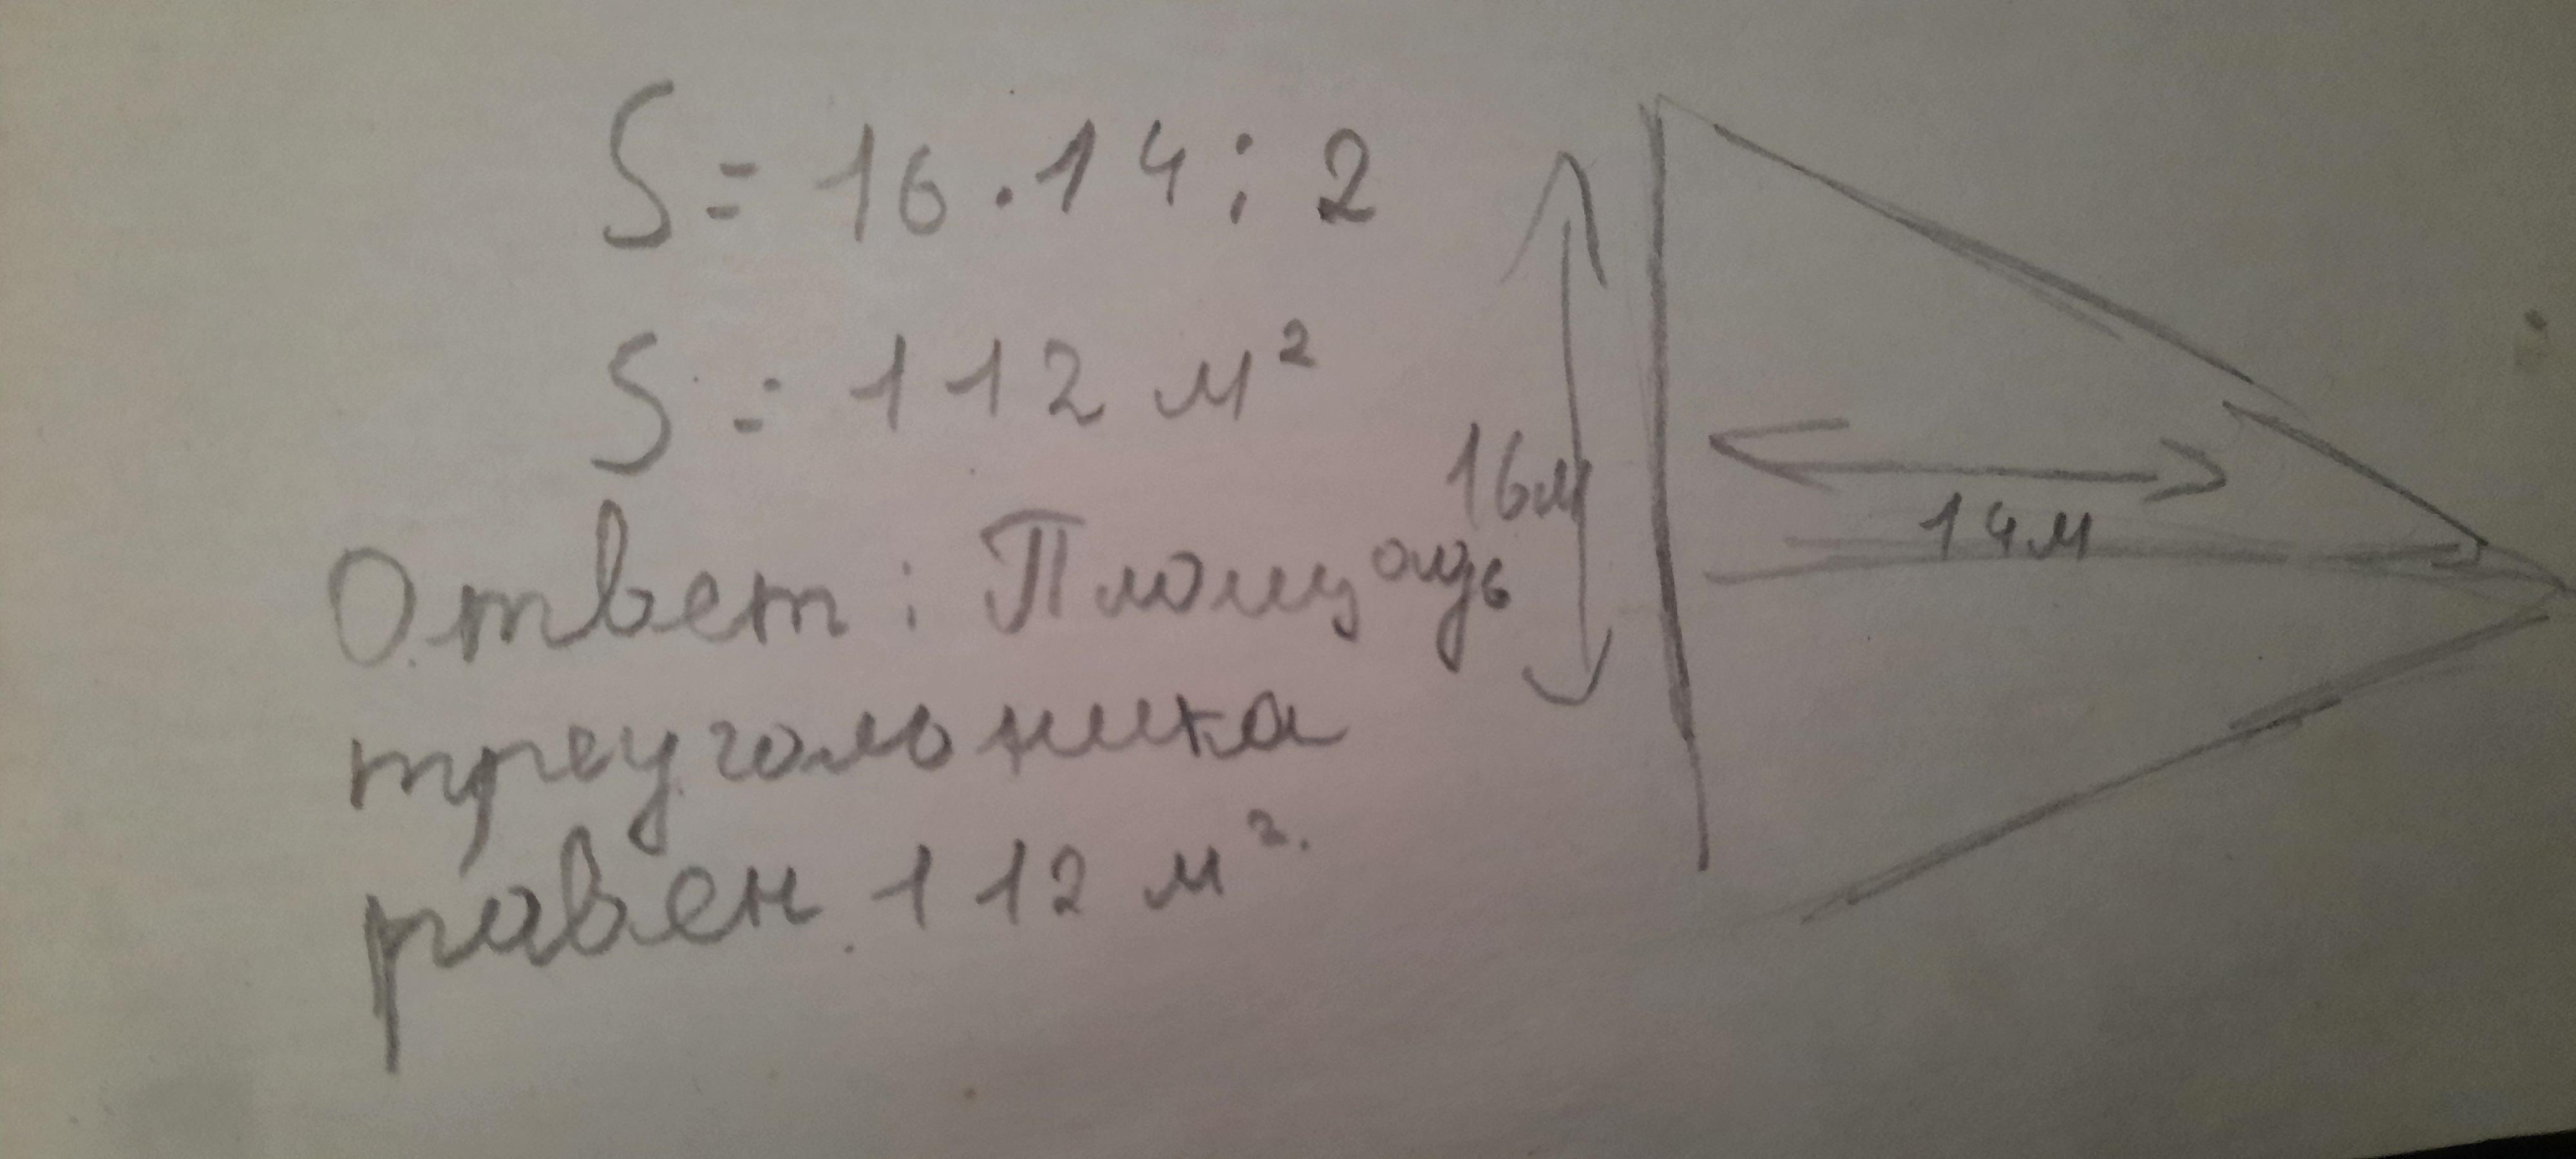 S = 16 · 14 : 2
S = 112 м²
Ответ: Площадь
треугольника
равен 112 м².
16м
14м